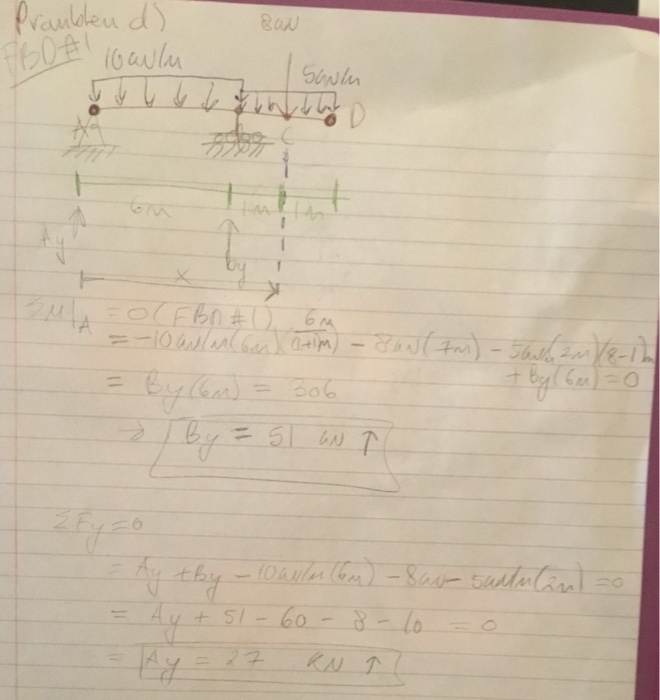 Problem d)
8kN
FBD #1
10kN/m
5kN/m
A
C
D
6m
1m
1m
Ay
By
x
ΣM|A = 0 (FBD #1)
= -10kN/m(6m)(6m/(1+1)m) - 8kN(7m) - 5kN/m(2m)(8-1)m
+ By(6m) = 0
= By(6m) = 306
→ By = 51 kN ↑
ΣFy = 0
= Ay + By - 10kN/m(6m) - 8kN - 5kN/m(2m) = 0
= Ay + 51 - 60 - 8 - 10 = 0
= Ay = 27 kN ↑